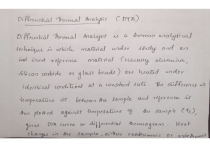 Differential Thermal Analysis (DTA)
Differential Thermal Analysis is a thermal analytical
technique in which material under study and an
inert reference material (usually alumina,
silicon carbide or glass beads) are heated under
identical conditions at a constant rate. The difference in
temperature between the sample and reference is
then plotted against temperature of the sample
gives DTA curve or differential thermogram. Heat
changes in the sample, either exothermic or endothermic